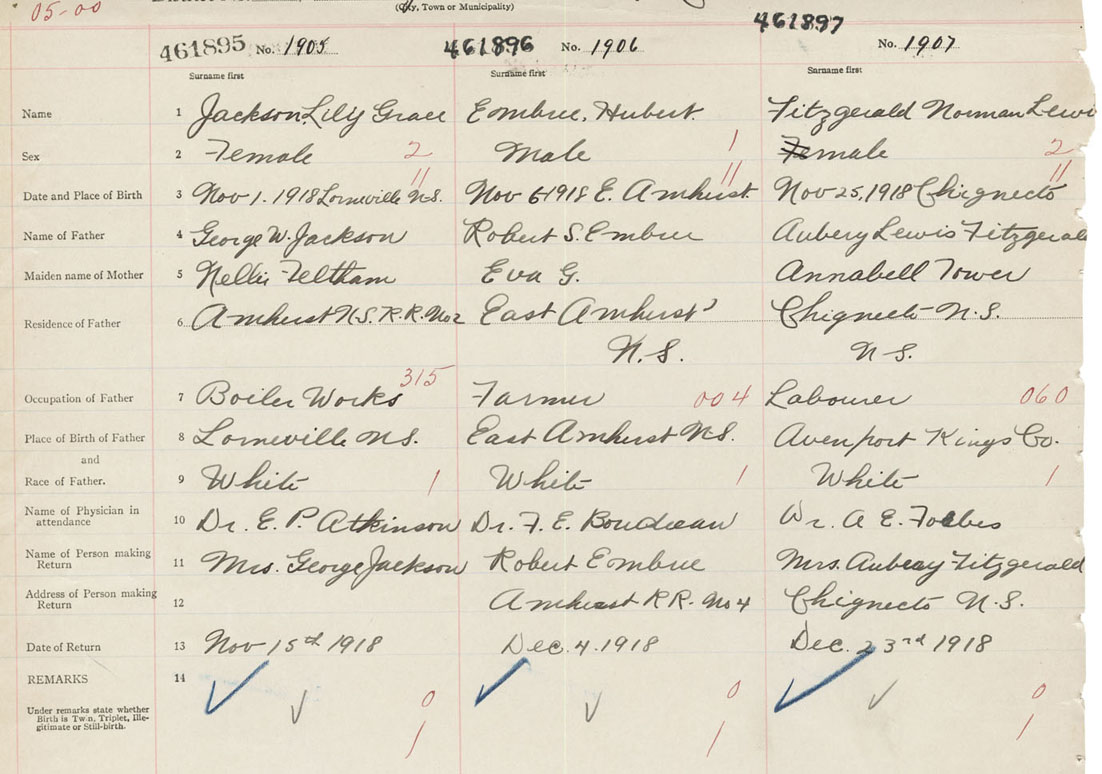 05-00
(City, Town or Municipality)
461895 No. 1905 461896 No. 1906 461897 No. 1907
Surname first Surname first Surname first
Name 1 Jackson, Lily Grace Embree, Hubert. Fitzgerald Norman Lewis
Sex 2 Female 2 Male 1 Female 2
11 11 11
Date and Place of Birth 3 Nov 1. 1918 Lorneville N.S. Nov 6 1918 E. Amherst. Nov 25, 1918 Chignecto
Name of Father 4 George W. Jackson Robert S. Embree Aubery Lewis Fitzgerald
Maiden name of Mother 5 Nellie Feltham Eva G. Annabell Tower
Residence of Father 6 Amherst N.S. R.R. No 2 East Amherst Chignecto N.S.
N.S. N S.
315
Occupation of Father 7 Boiler Works Farmer 004 Labourer 060
Place of Birth of Father 8 Lorneville N.S. East Amherst N.S. Avenport Kings Co.
and
Race of Father. 9 White 1 White 1 White 1
Name of Physician in
attendance 10 Dr. E. P. Atkinson Dr. F. E. Boudreau Dr. A E. Forbes
Name of Person making
Return 11 Mrs. George Jackson Robert Embree Mrs. Aubery Fitzgerald
Address of Person making
Return 12 Amherst R.R. No 4 Chignecto N.S.
Date of Return 13 Nov 15th 1918 Dec. 4. 1918 Dec. 23rd 1918
REMARKS 14
0 0 0
Under remarks state whether
Birth is Twin, Triplet, Ille-
gitimate or Still-birth.
1 1 1